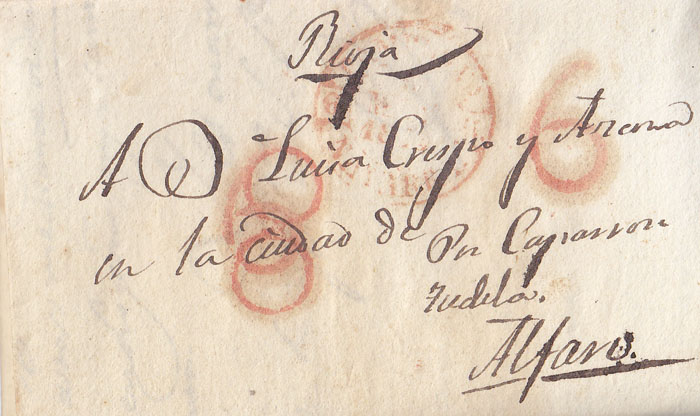 Rioja
A D Luisa Crespo y Azcona
en la ciudad de
Pr Caparroso
Tudela.
Alfaro.
8
6